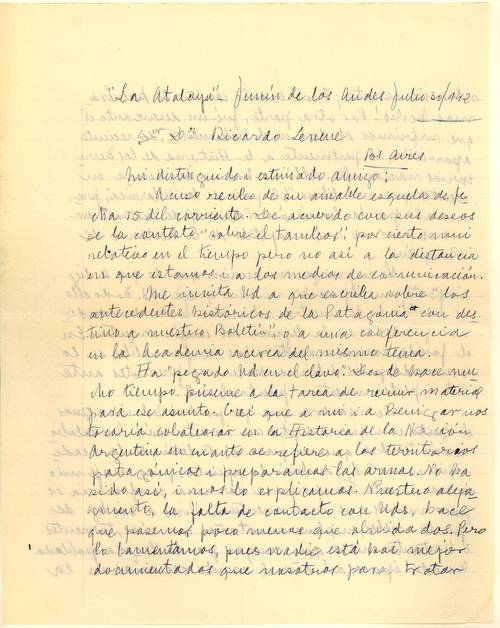 "La Atalaya". Junín de los Andes Julio 30/942
Sr. Dn. Ricardo Levene
Bs Aires
Mi distinguido i estimado amigo:
Acuso recibo de su amable esquela de fe
cha 15 del corriente. De acuerdo con sus deseos
se la contesto "sobre el tambor", por cierto, mui
relativo en el tiempo pero no así a la distancia
en que estamos i a los medios de comunicación.
Me invita Ud a que escriba sobre "los
antecedentes históricos de la Patagonia" con des
tino a nuestro Boletín" o a una conferencia
en la Academia acerca del mismo tema.
Ha pegado Ud en el clavo". Desde hace mu
cho tiempo púseme a la tarea de reunir material
para ese asunto. Creí que a mí i a Benigar nos
tocaría colaborar en la Historia de la Nación
Argentina en cuanto se refiere a los territorios
patagónicos i preparamos las armas. No ha
sido así, i nos lo explicamos. Nuestro aleja
miento, la falta de contacto con Uds, hace
que pasemos poco menos que olvidados. Pero
lo lamentamos, pues nadie está hoi mejor
documentados que nosotros para tratar